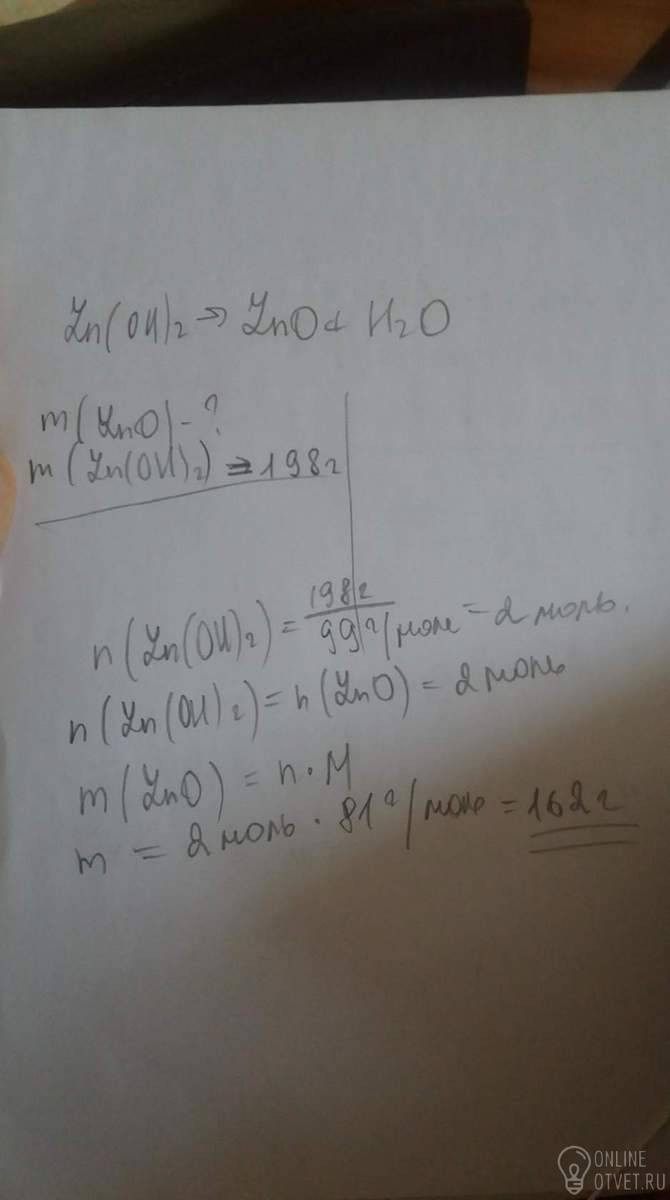 Zn(OH)₂ → ZnO + H₂O
m(ZnO) - ?
m(Zn(OH)₂) = 198г
n(Zn(OH)₂) = 198г / 99г/моль = 2 моль.
n(Zn(OH)₂) = n(ZnO) = 2 моль
m(ZnO) = n · M
m = 2 моль · 81г/моль = 162г
ONLINE
OTVET.RU